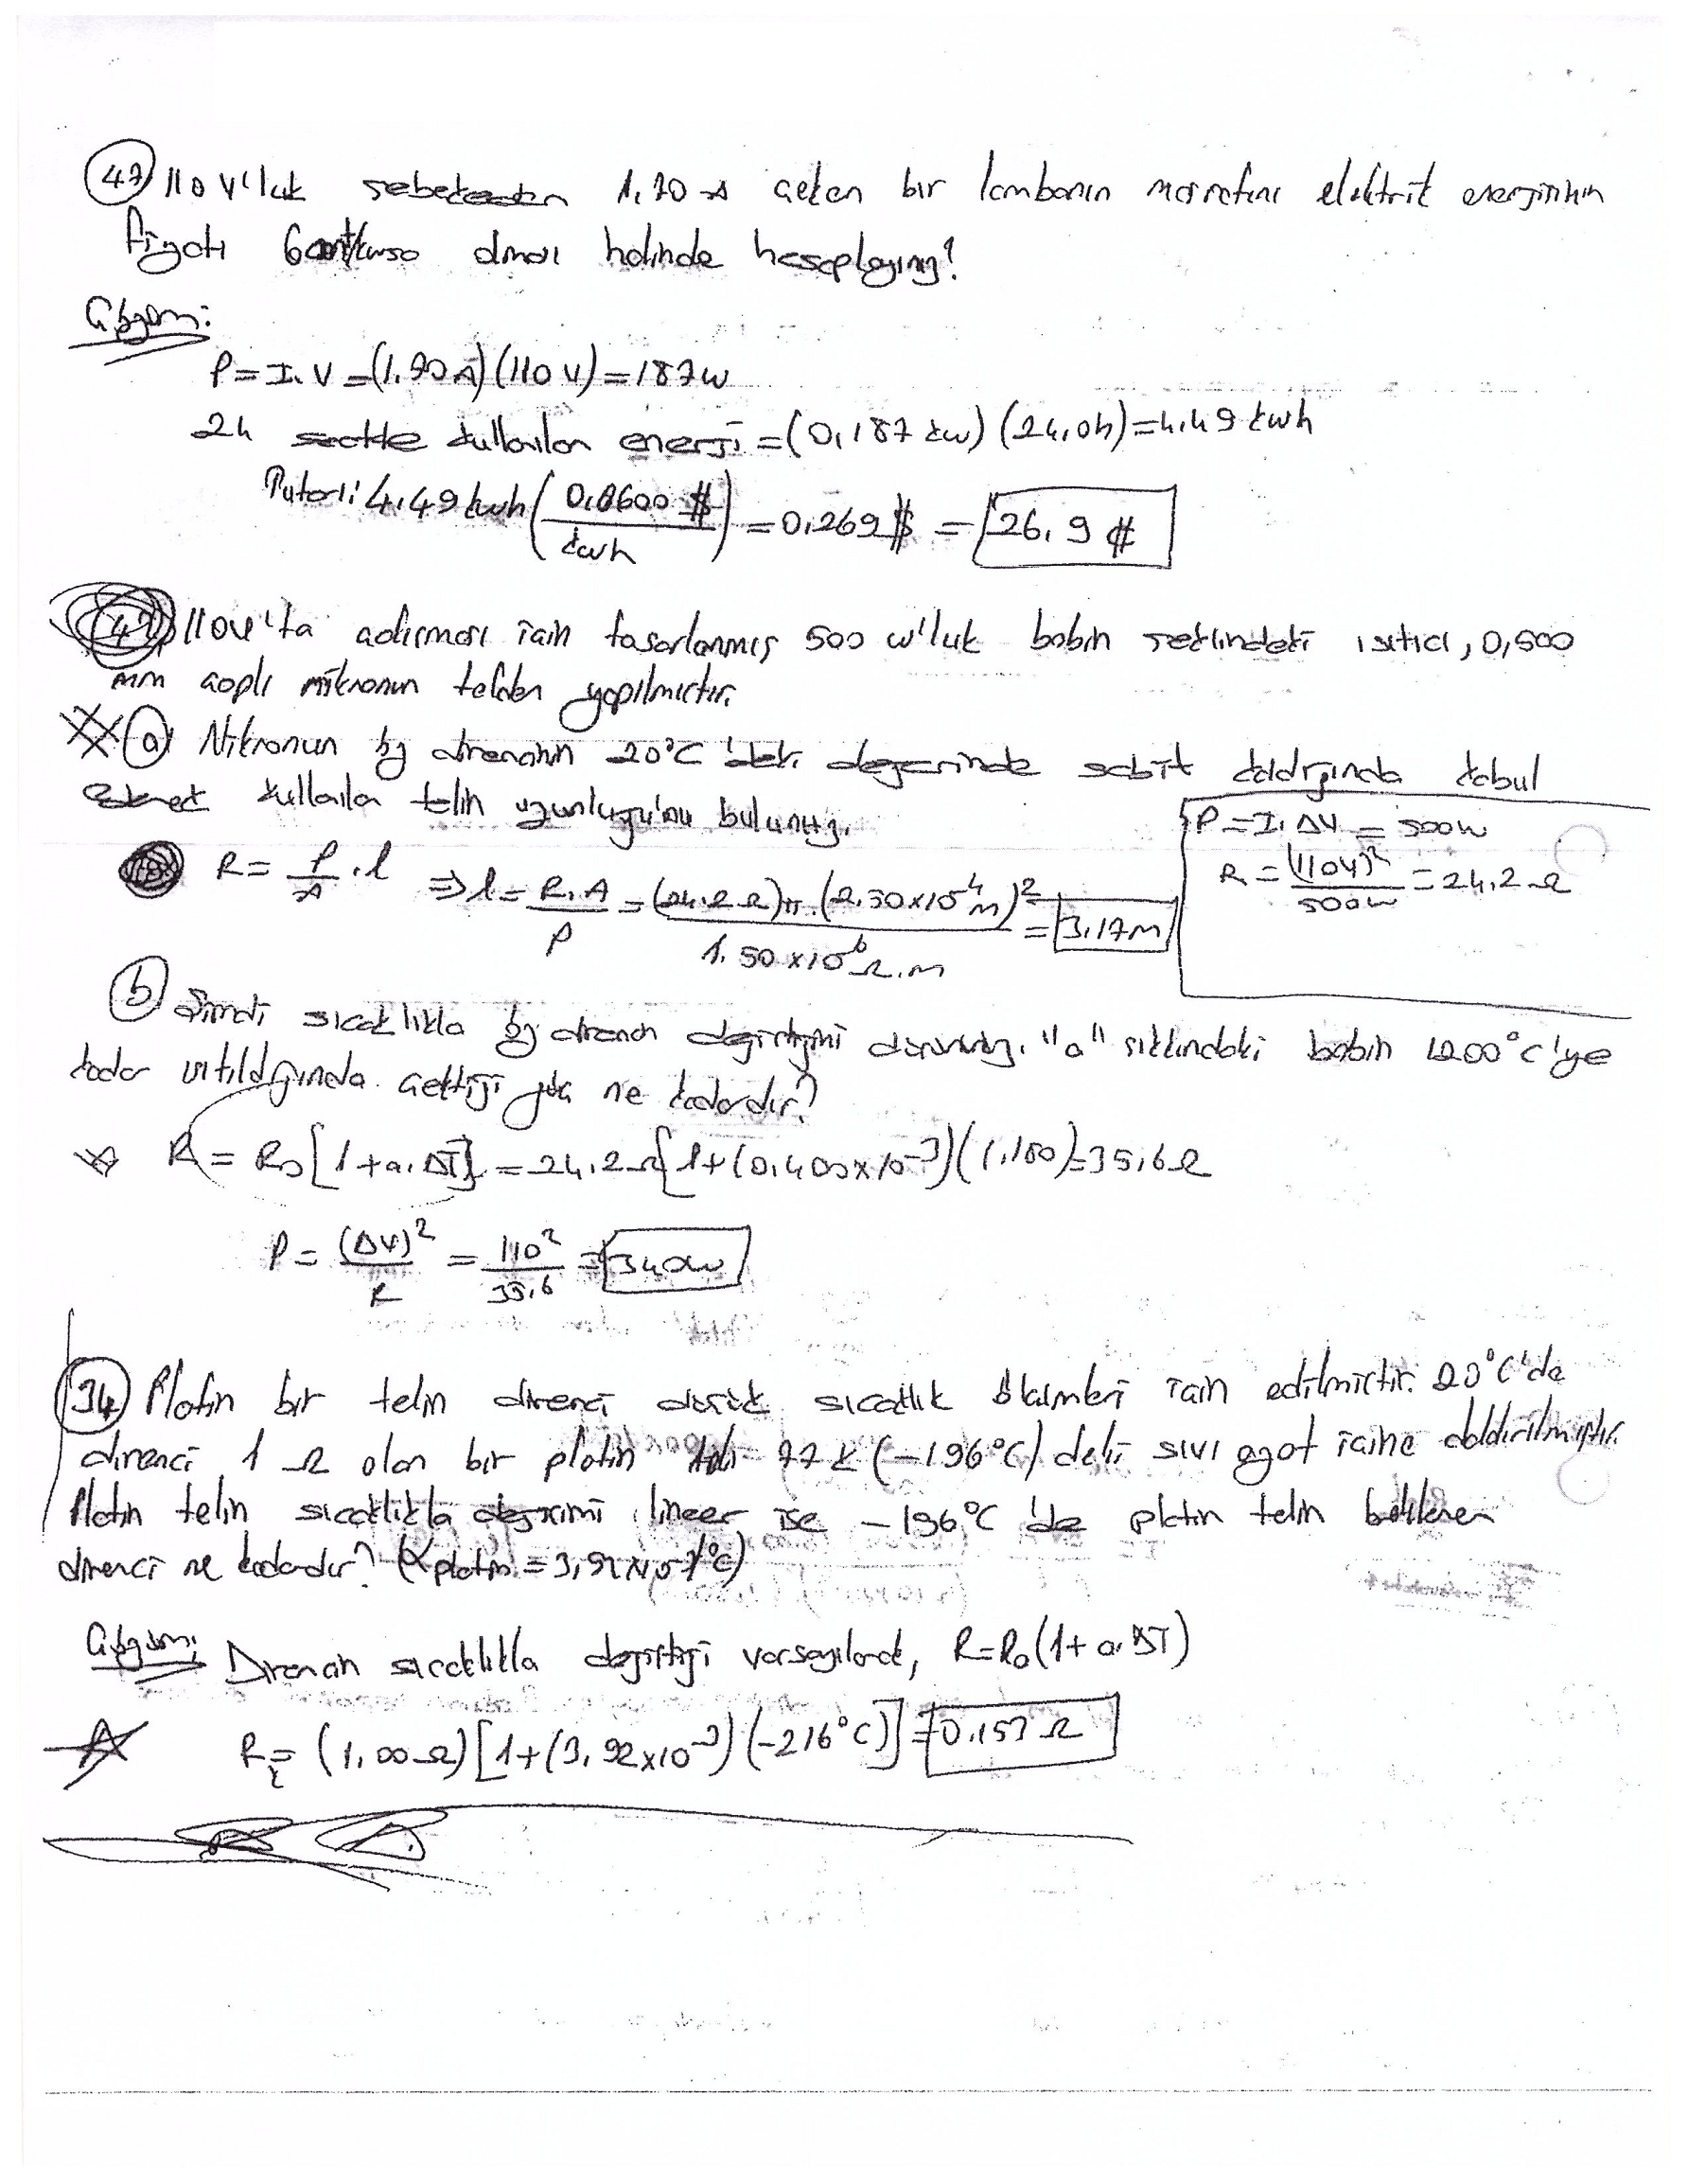 47 110 V'luk şebekeden 1.70 A çeken bir lambanın masrafını elektrik enerjisinin
fiyatı 6 cent/kwsa olması halinde hesaplayınız?
Çözüm:
P = I.V = (1.70 A)(110 V) = 187 W
24 saatte kullanılan enerji = (0,187 kw) (24,0h) = 4.49 kwh
Tutarı: 4.49 kwh (0,0600 $ / kwh) = 0,269 $ = 26,9 ¢
49 110V'ta çalışması için tasarlanmış 500 w'luk bobin şeklindeki ısıtıcı, 0,500
mm çaplı nikronun telden yapılmıştır.
a) Nikronun öz direncinin 20°C'deki değerinde sabit kaldığında kabul
ederek kullanılan telin uzunluğunu bulunuz.
P = I.ΔV = 500w
R = (110V)² / 500w = 24,2 Ω
R = ρ/A . l ⇒ l = R.A / ρ = (24,2 Ω)π.(2.50x10⁻⁴ m)² / 1.50x10⁻⁶ Ω.m = 3,17m
b) Şimdi sıcaklıkla öz direncin değiştiğini düşününüz. "a" şıkkındaki bobin 1200°C'ye
kadar ısıtıldığında çektiği güç ne kadardır?
R = R₀[1+α.ΔT] = 24,2Ω[1+(0,400x10⁻³)(1,180) = 35,6 Ω
P = (ΔV)² / R = 110² / 35,6 = 340w
34 Platin bir telin direnci düşük sıcaklık ölçümleri için edilmiştir. 20°C'de
direnci 1 Ω olan bir platin teli 77 K (-196°C) deki sıvı azot içine daldırılmıştır.
Platin telin sıcaklıkla değişimi lineer ise -196°C'de platin telin beklenen
direnci ne kadardır? (α platin = 3,92x10⁻³/°C)
Çözüm: Direncin sıcaklıkla değiştiği varsayılarak, R=R₀(1+α.ΔT)
R = (1,00 Ω)[1+(3,92x10⁻³)(-216°C)] = 0,153 Ω